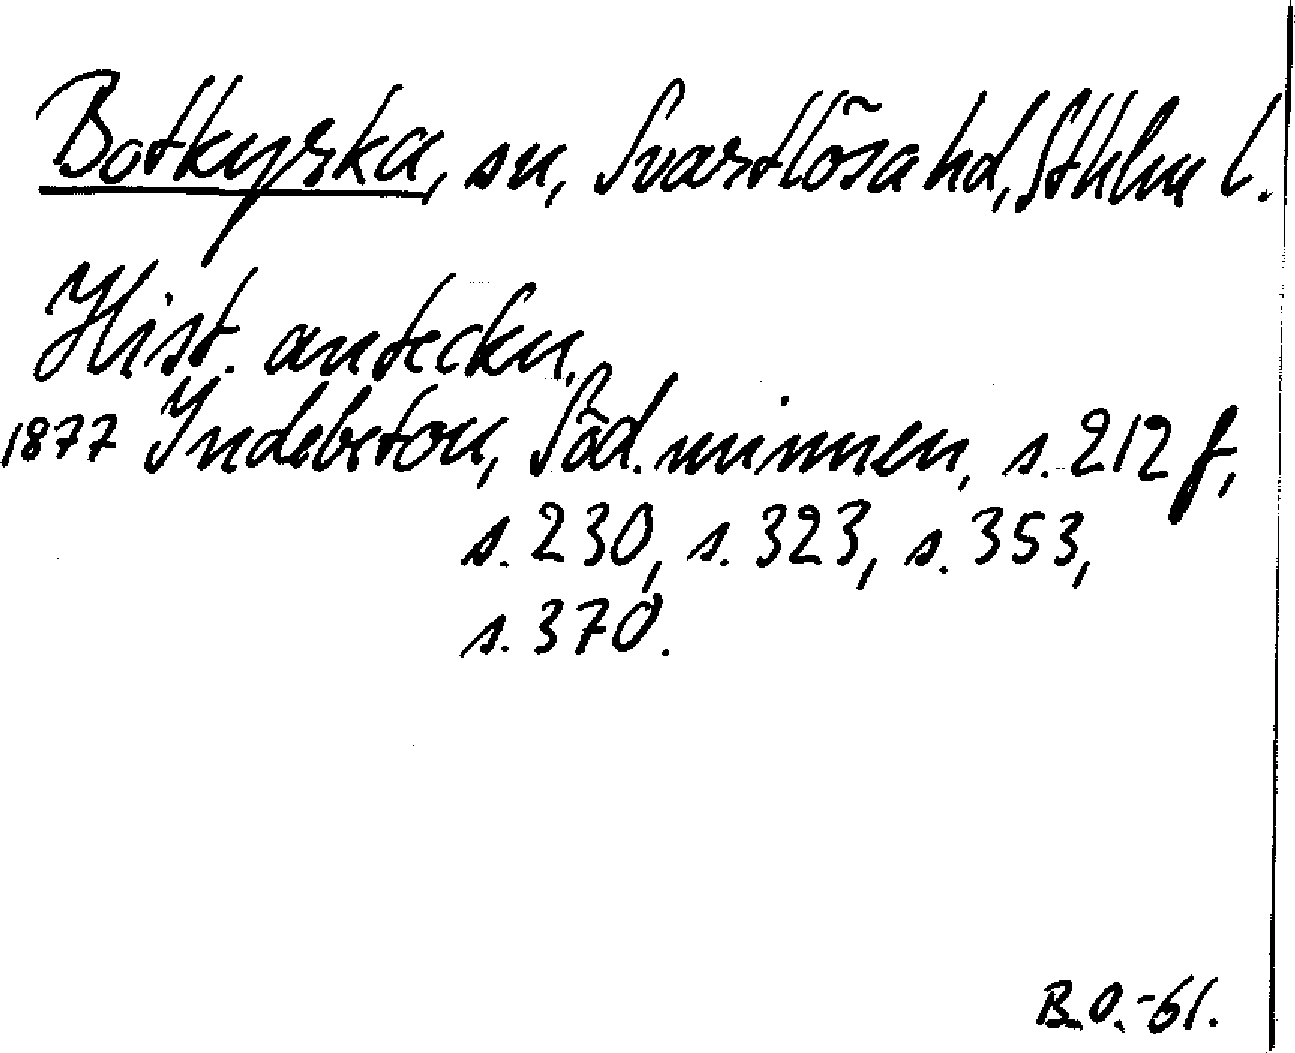 Botkyrka, sn, Svartlösa hd, Sthlm l.
Hist. anteckn.
1877 Indebetou, Söd. minnen, s. 212 f,
s. 230, s. 323, s. 353,
s. 370.
B.O.-61.